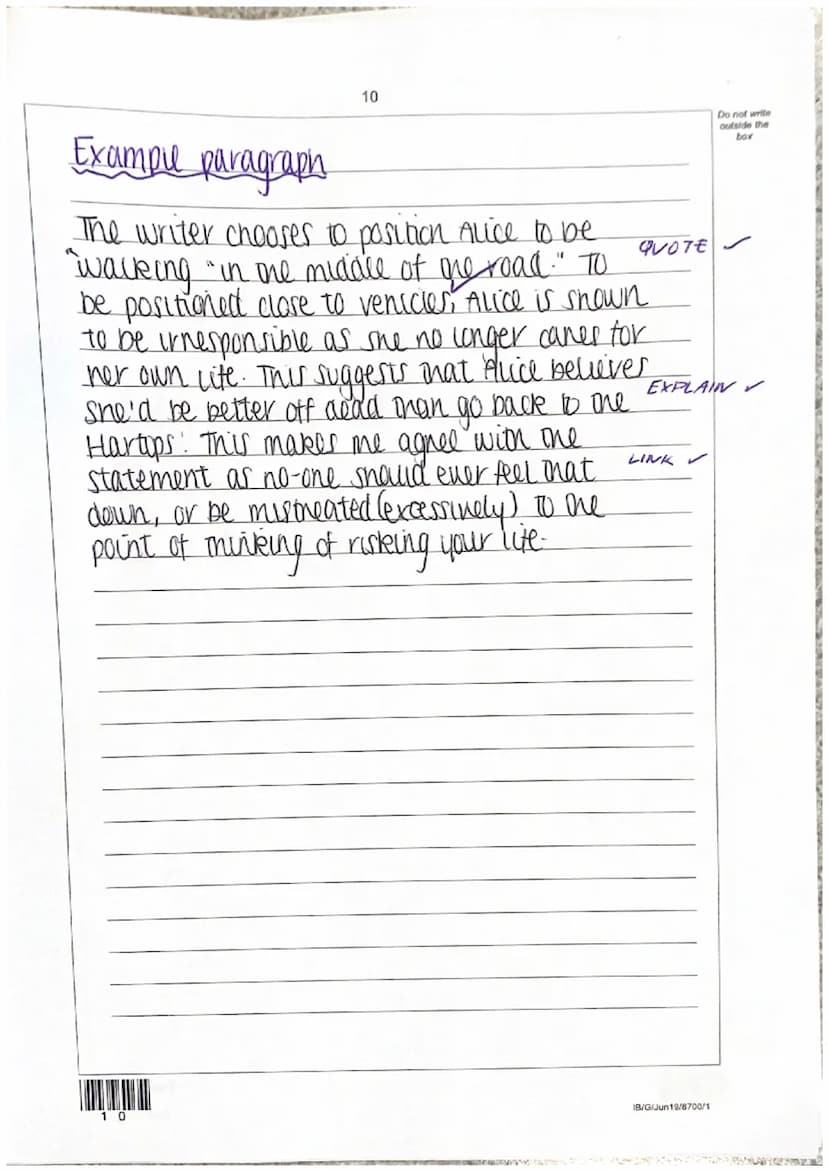 10
Do not write
outside the
box
Example paragraph
The writer chooses to position Alice to be
"walking "in the middle of the road." To
QUOTE ✓
be positioned close to vehicles, Alice is shown
to be irresponsible as she no longer cares for
her own life. This suggests that Alice believes
she'd be better off dead than go back to the
EXPLAIN ✓
Hartops'. This makes me agree with the
statement as no-one should ever feel that
LINK ✓
down, or be mistreated (excessively) to the
point of thinking of riskeing your life.
1 0
IB/G/Jun19/8700/1